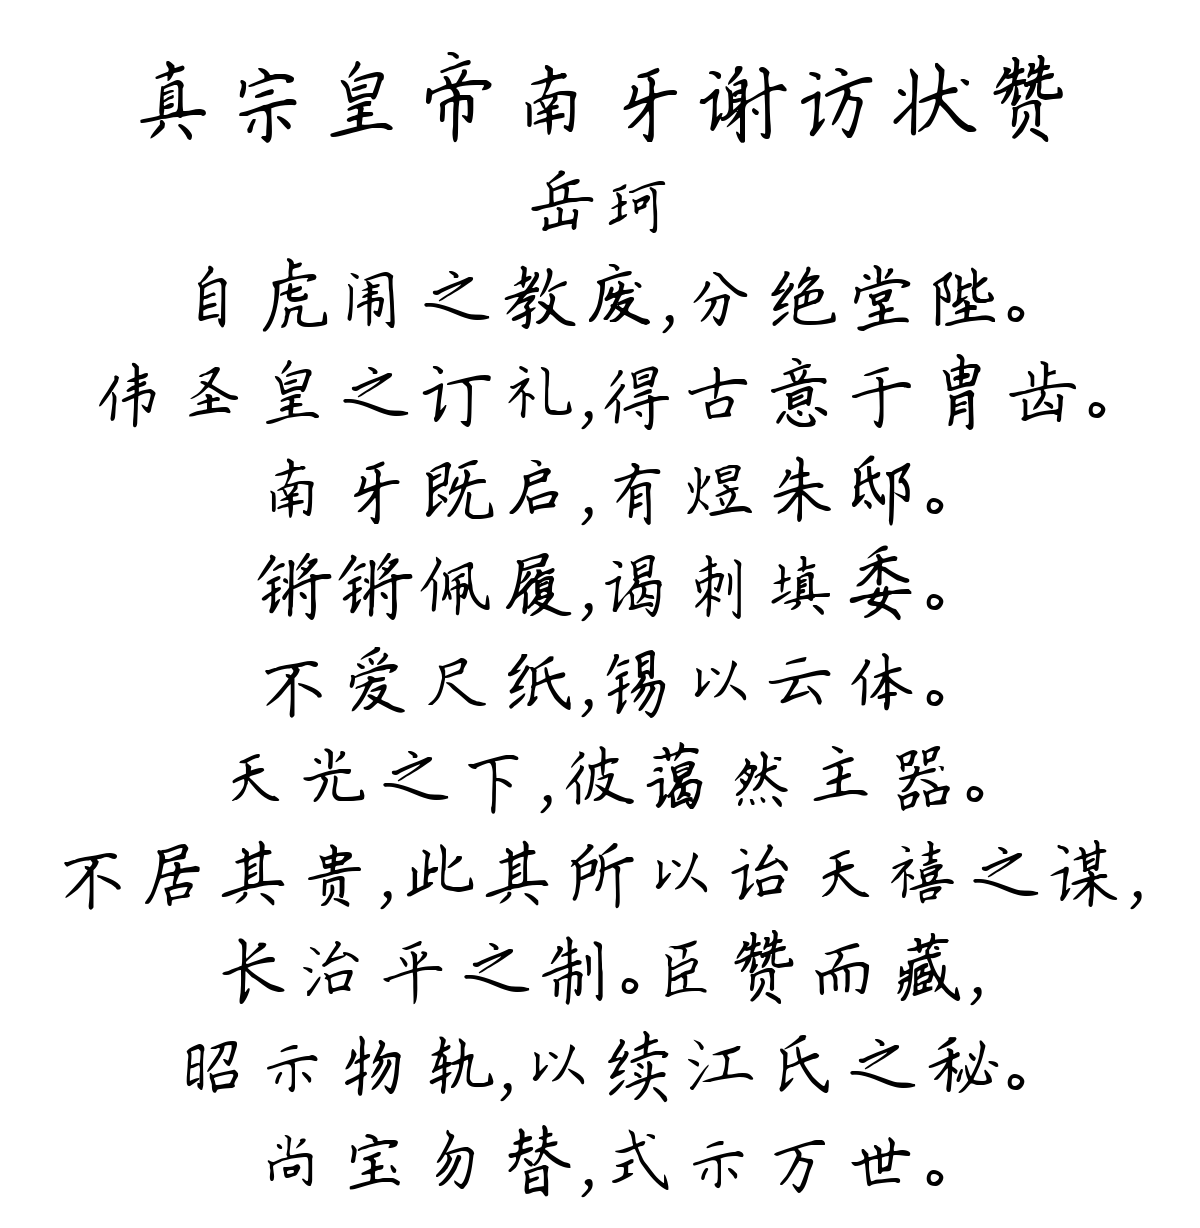 真宗皇帝南牙谢访状赞
岳珂
自虎闱之教废,分绝堂陛。
伟圣皇之订礼,得古意于胄齿。
南牙既启,有煜朱邸。
锵锵佩履,谒刺填委。
不爱尺纸,锡以云体。
天光之下,彼蔼然主器。
不居其贵,此其所以诒天禧之谋,
长治平之制。臣赞而藏,
昭示物轨,以续江氏之秘。
尚宝勿替,式示万世。